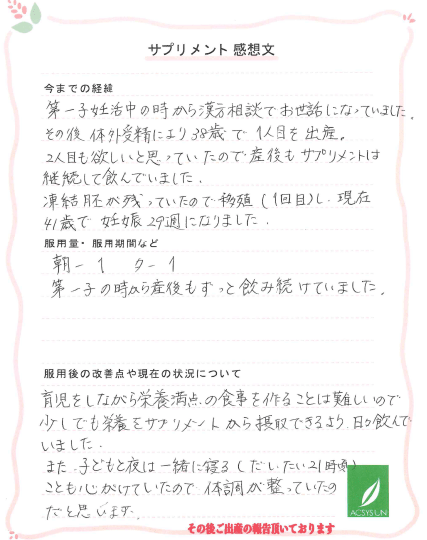 サプリメント 感想文
今までの経緯
第一子妊活中の時から漢方相談でお世話になっていました。
その後、体外受精により38歳で1人目を出産。
2人目も欲しいと思っていたので産後もサプリメントは
継続して飲んでいました。
凍結胚が残っていたので移殖(1回目)し、現在
41歳で妊娠29週になりました。
服用量・服用期間など
朝-1 夕-1
第一子の時から産後もずっと飲み続けていました。
服用後の改善点や現在の状況について
育児をしながら栄養満点の食事を作ることは難しいので
少しでも栄養をサプリメントから摂取できるよう、日々飲んで
いました。
また、子どもと夜は一緒に寝る(だいたい21時頃)
ことも心がけていたので体調が整っていたの
だと思います。
ACSYSUN
その後ご出産の報告頂いております